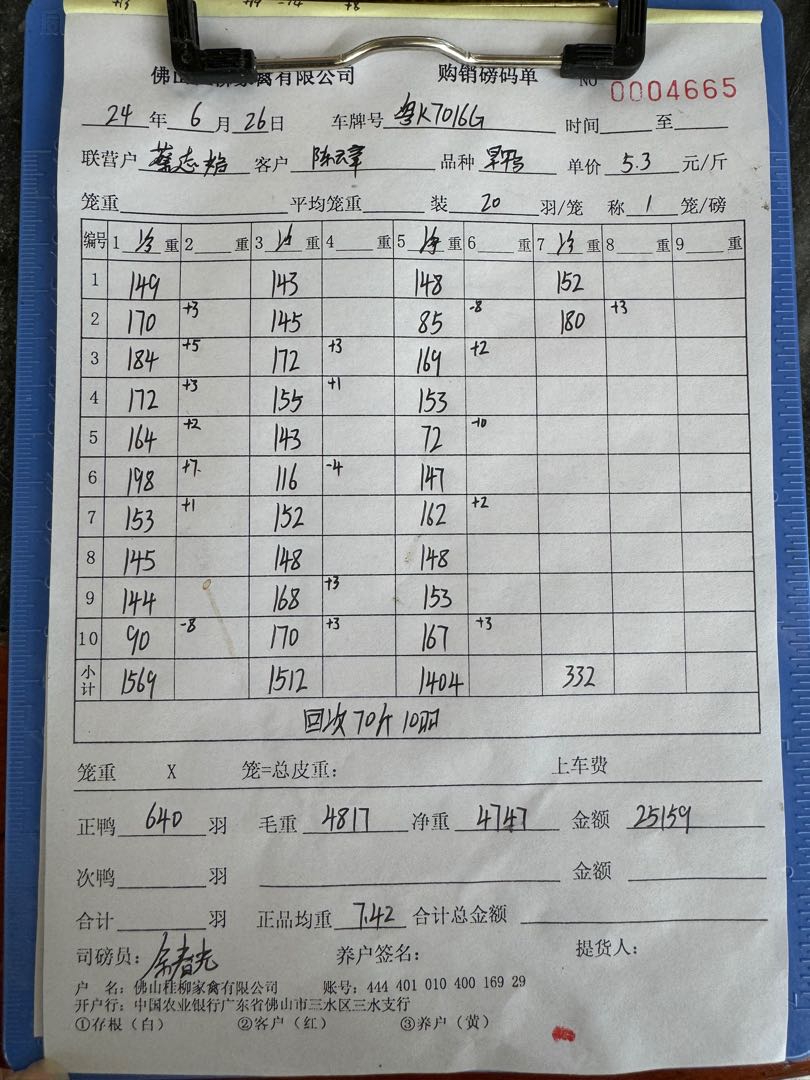 +13 +19 -14 +8
佛山桂柳家禽有限公司 购销磅码单 NO 0004665
24 年 6 月 26 日 车牌号 粤K7016G 时间 至
联营户 蔡志焰 客户 陈云章 品种 旱鸭 单价 5.3 元/斤
笼重 平均笼重 装 20 羽/笼 称 1 笼/磅
编号 1 净 重 2 重 3 净 重 4 重 5 净 重 6 重 7 净 重 8 重 9 重
1 149 143 148 152
2 170 +3 145 85 -8 180 +3
3 184 +5 172 +3 169 +2
4 172 +3 155 +1 153
5 164 +2 143 72 -10
6 198 +7 116 -4 147
7 153 +1 152 162 +2
8 145 148 148
9 144 168 +3 153
10 90 -8 170 +3 167 +3
小计 1569 1512 1404 332
回次70斤10羽
笼重 X 笼=总皮重: 上车费
正鸭 640 羽 毛重 4817 净重 4747 金额 25159
次鸭 羽 金额
合计 羽 正品均重 7.42 合计总金额
司磅员: 余春光 养户签名: 提货人:
户 名: 佛山桂柳家禽有限公司 账号: 444 401 010 400 169 29
开户行: 中国农业银行广东省佛山市三水区三水支行
①存根(白) ②客户(红) ③养户(黄)